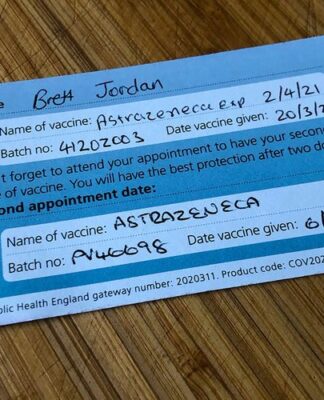 e Brett Jordan
Name of vaccine: Astrazeneca exp 2/4/21
Batch no: 41202003 Date vaccine given: 20/3/2
t forget to attend your appointment to have your second
e of vaccine. You will have the best protection after two do
ond appointment date:
Name of vaccine: ASTRAZENECA
Batch no: AV46698 Date vaccine given: 6/
blic Health England gateway number: 2020311. Product code: COV202